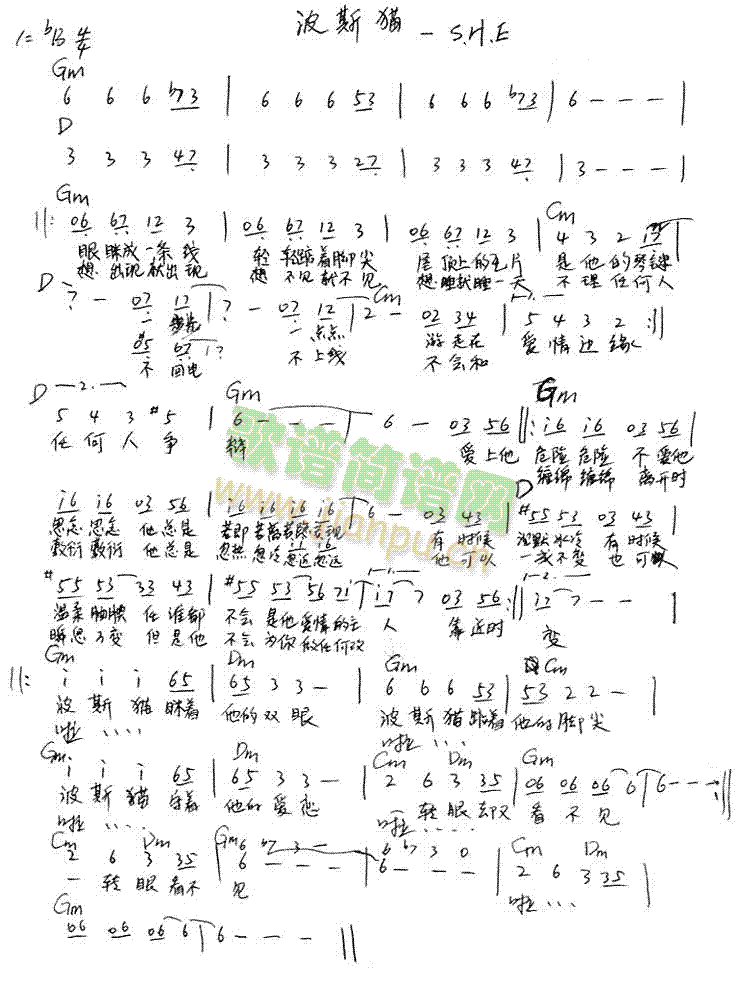 波斯猫 - S.H.E
1=bB 4/4
Gm
6 6 6 b7 3 | 6 6 6 53 | 6 6 6 b73 | 6 - - - |
D
3 3 3 47 | 3 3 3 27 | 3 3 3 47 | 3 - - - |
Gm Cm
||: 06 67 12 3 | 06 67 12 3 | 06 67 12 3 | 4 3 2 17 |
眼眯成一条线 轻轻踮着脚尖 屋顶上的瓦片 是他的琴键
想出现就出现 想不见就不见 想睡就睡一天 不理任何人
D Cm 1.
7 - 07 17 | 7 - 07 12 | 2 - 02 34 | 5 4 3 2 :||
一步步 一点点 游走在 爱情边缘
05 07 | 7
不回电 不上线 不会和
D 2. Gm Gm
5 4 3 #5 | 6 - - - | 6 - 03 56 ||: i6 i6 03 56 |
任何人争 辩 爱上他 危险危险 不爱他
缠绵缠绵 离开时
D
i6 i6 03 56 | i6 i6 i6 i6 | 6 - 03 43 | #55 53 03 43 |
思念思念 他总是 若即若离若隐若现 有时候 沉默冰冷 有时候
敷衍敷衍 他总是 忽热忽冷忽近忽远 他可以 一成不变 也可以
1. 2.
#55 53 33 43 | #55 53 56 7i | i7 7 03 56 :|| i7 7 - - |
温柔腼腆 任谁都 不会是他爱情的主 人 靠近时 变
瞬息万变 但是他 不会为你做任何改
Gm Dm Gm Cm
||: i i i 65 | 65 3 3 - | 6 6 6 53 | 53 2 2 - |
波斯猫眯着 他的双眼 波斯猫踮着 他的脚尖
啦.... 啦....
Gm Dm Cm Dm Gm
i i i 65 | 65 3 3 - | 2 6 3 35 | 06 06 06 6 | 6 - - - :||
波斯猫守着 他的爱恋 一转眼却又 看不见
啦.... 啦....
Cm Dm Gm 6 b7 3 - 6 b7 3 0 Cm Dm
2 6 3 35 | 6 - - - | 6 - - - | 2 6 3 35 |
一转眼看不 见 啦....
Gm
06 06 06 6 | 6 - - - ||
歌谱简谱网
www.jianpu.cn